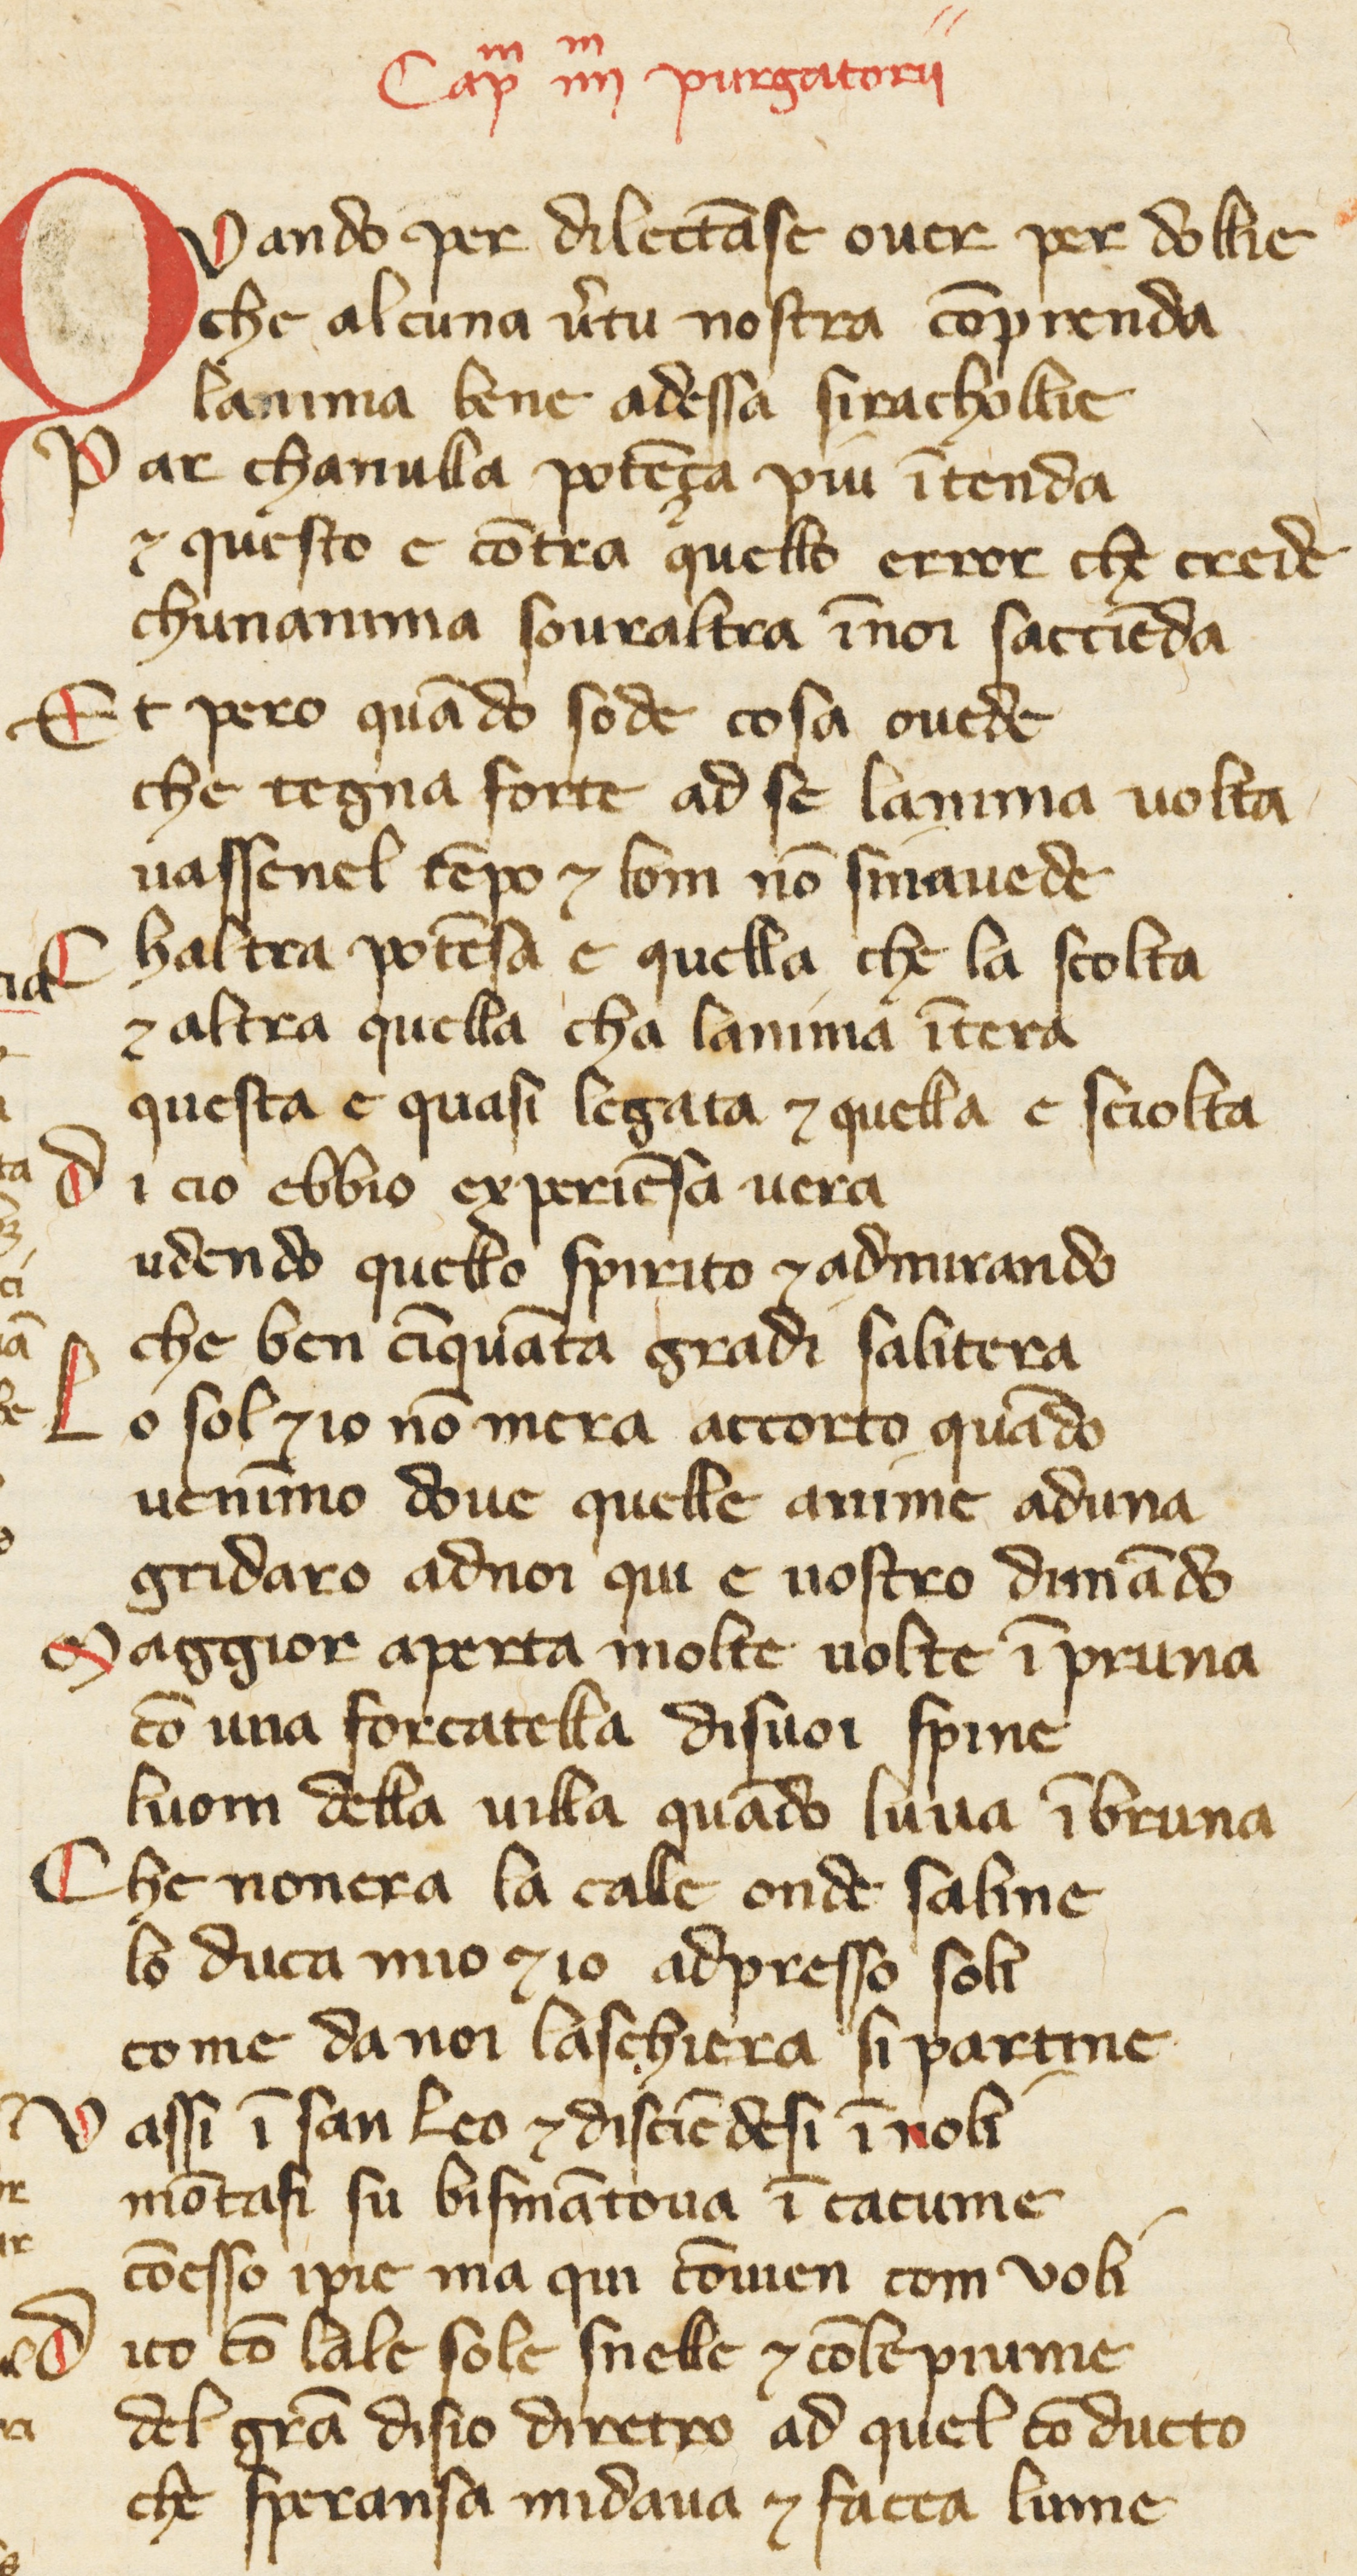 Capm iiijm purgatorij
QVando per dilectāse ouer per dollie
che alcuna v̄tu nostra cōprenda
lanima bene adessa sirachollie
Par chanulla potēça piu ītenda
⁊ questo e cōtra quello error che crede
chunanima souraltra īnoi sacciēda
Et pero quādo sode cosa ouede
che tegna forte ad se lanima uolta
uassenel tēpo ⁊ lom nō sinauede
Chaltra potēsa e quella che la scolta
⁊ altra quella cha lanima ītera
questa e quasi legata ⁊ quella e sciolta
di cio ebbio experiēsa uera
udendo quello spirito ⁊ admirando
che ben cīquāta gradi salitera
Lo sol ⁊ io nō mera accorto quādo
uenīmo doue quelle anime aduna
gridaro adnoi qui e uostro dimādo
Maggior aperta molte uolte ī pruna
cō una forcatella disuoi spine
luom della uilla quādo luua ībruna
Che nonera la calle onde saline
lo duca mio ⁊ io adpresso soli
come da noi laschiera si partine
Vassi ī san leo ⁊ disciēdesi ī noli
mōtasi su bismātoua ī cacume
cōesso ipie ma qui cōuien com voli
dico cō lale sole snelle ⁊ cōle piume
del grā disio diretro ad quel cōducto
che speransa midaua ⁊ facea lume